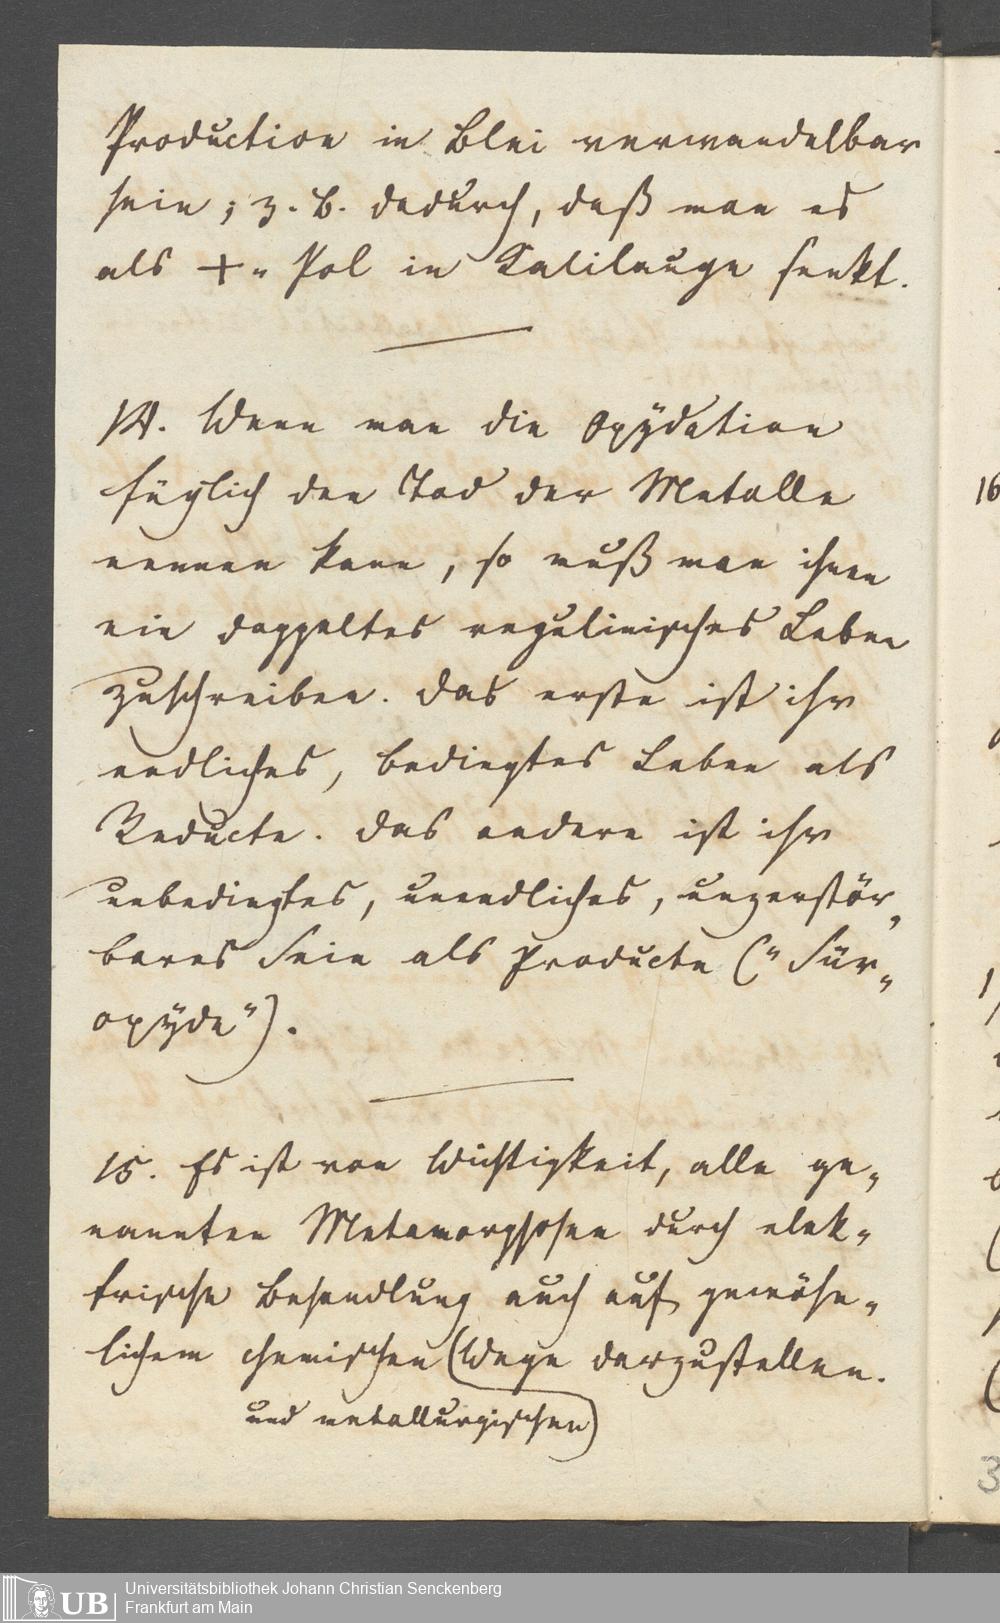 Production in Blei verwandelbar
sein; z. B. dadurch, daß man es
als +-Pol in Kalilauge senkt.
14. Wenn man die Oxÿdation
füglich den Tod der Metalle
nennen kann, so muß man ihnen
ein doppeltes regulinisches Leben
zuschreiben. Das erste ist ihr
endliches, bedingtes Leben als
Reducte. Das andere ist ihr
unbedingtes, unendliches, unzerstör-
bares Sein als Producte („Für-
oxÿde“).
15. Es ist von Wichtigkeit, alle ge-
nannten Metamorphosen durch elek-
trische Behandlung auch auf gewöhn-
lichem chemischen (Wege darzustellen.
und metallurgischen)
16
3
Universitätsbibliothek Johann Christian Senckenberg
Frankfurt am Main
UB